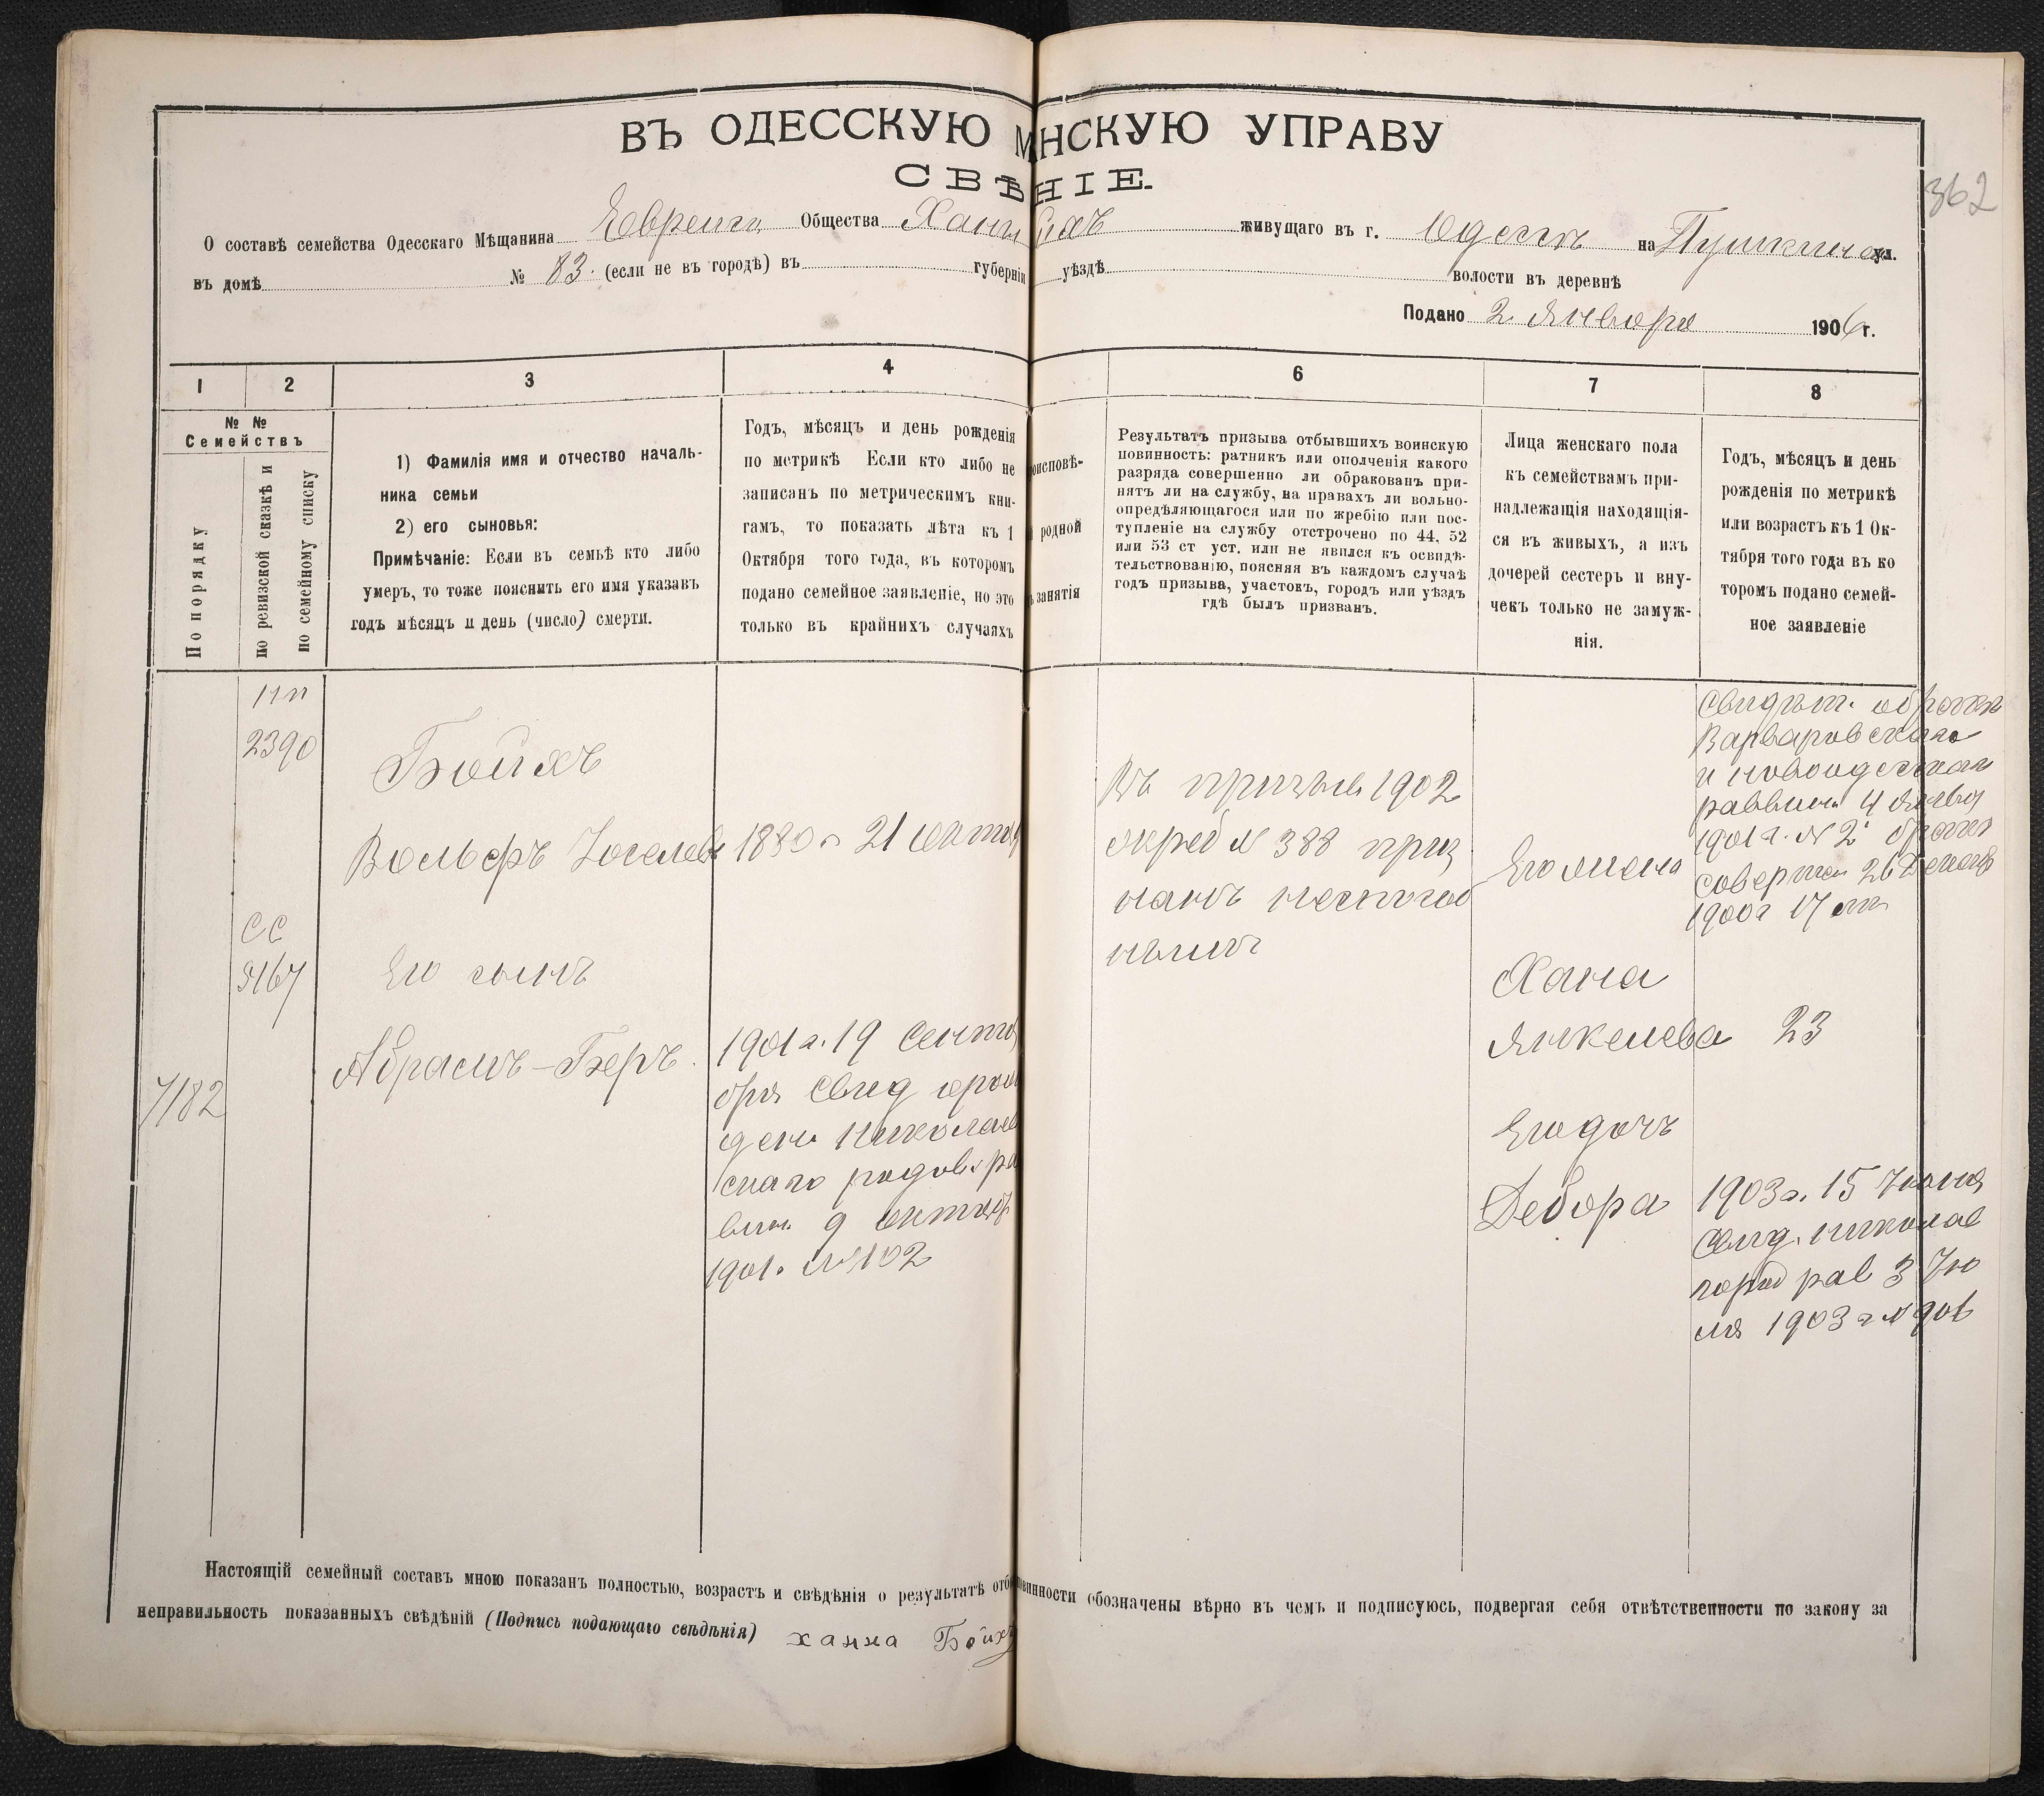 ВЪ ОДЕССКУЮ М НСКУЮ УПРАВУ
СВѢ НІЕ.
362
О составѣ семейства Одесскаго Мѣщанина Евреискъ Общества Ханы живущаго въ г. Одессѣ на Пушкинск ул.
въ домѣ № 83. (если не въ городѣ) въ губерніи уѣздѣ волости въ деревнѣ
Подано 2 Января 1906 г.
1 2 3 4 6 7 8
№ №
Семействъ
По порядку
по ревизской сказкѣ и
по семейному списку
1) Фамилія имя и отчество началь-
ника семьи
2) его сыновья:
Примѣчаніе: Если въ семьѣ кто либо
умеръ, то тоже пояснить его имя указавъ
годъ мѣсяцъ и день (число) смерти.
Годъ, мѣсяцъ и день рожденія
по метрикѣ Если кто либо не
записанъ по метрическимъ кни-
гамъ, то показать лѣта къ 1
Октября того года, въ которомъ
подано семейное заявленіе, но это
только въ крайнихъ случаяхъ
оисповѣ-
родной
занятія
Результатъ призыва отбывшихъ воинскую
повинность: ратникъ или ополченія какого
разряда совершенно ли обракованъ при-
нятъ ли на службу, на правахъ ли вольно-
опредѣляющагося или по жребію или пос-
тупленіе на службу отстрочено по 44, 52
или 53 ст уст. или не явился къ освидѣ-
тельствованію, поясняя въ каждомъ случаѣ
годъ призыва, участокъ, городъ или уѣздъ
гдѣ былъ призванъ.
Лица женскаго пола
къ семействамъ при-
надлежащія находящія-
ся въ живыхъ, а изъ
дочерей сестеръ и вну-
чекъ только не замуж-
нія.
Годъ, мѣсяцъ и день
рожденія по метрикѣ
или возрастъ къ 1 Ок-
тября того года въ ко
торомъ подано семей-
ное заявленіе
2390
Бойхъ
Вольфъ Іоселев
СС
5167
Его сынъ
Абрамъ-Беръ
7182
1880 г 21 октяб
1901 г. 19 Сентя
бря Свид о рож
ден. Николаев
скаго рав
вин. 9 октяб
1901. № 102
Въ призывъ 1902
жреб № 388 приз
нанъ неспособ
нымъ
Его жена
Хана
Янкелева
Его дочь
Дебора
Свидѣт. о бракѣ
Варваровскаго
и новоодесскаго
раввина 4 Января
1901 г. № 2 бракъ
соверш 26 Декаб
1900 г 17
23
1903 г. 15 Іюня
Свид. николае
город рав 3 Ію
ля 1903 г №
Настоящій семейный составъ мною показанъ полностью, возрастъ и свѣдѣнія о результатѣ отб овинности обозначены вѣрно въ чемъ и подписуюсь, подвергая себя отвѣтственности по закону за
неправильность показанныхъ свѣдѣній (Подпись подающаго свѣдѣнія) ханна Бойхъ